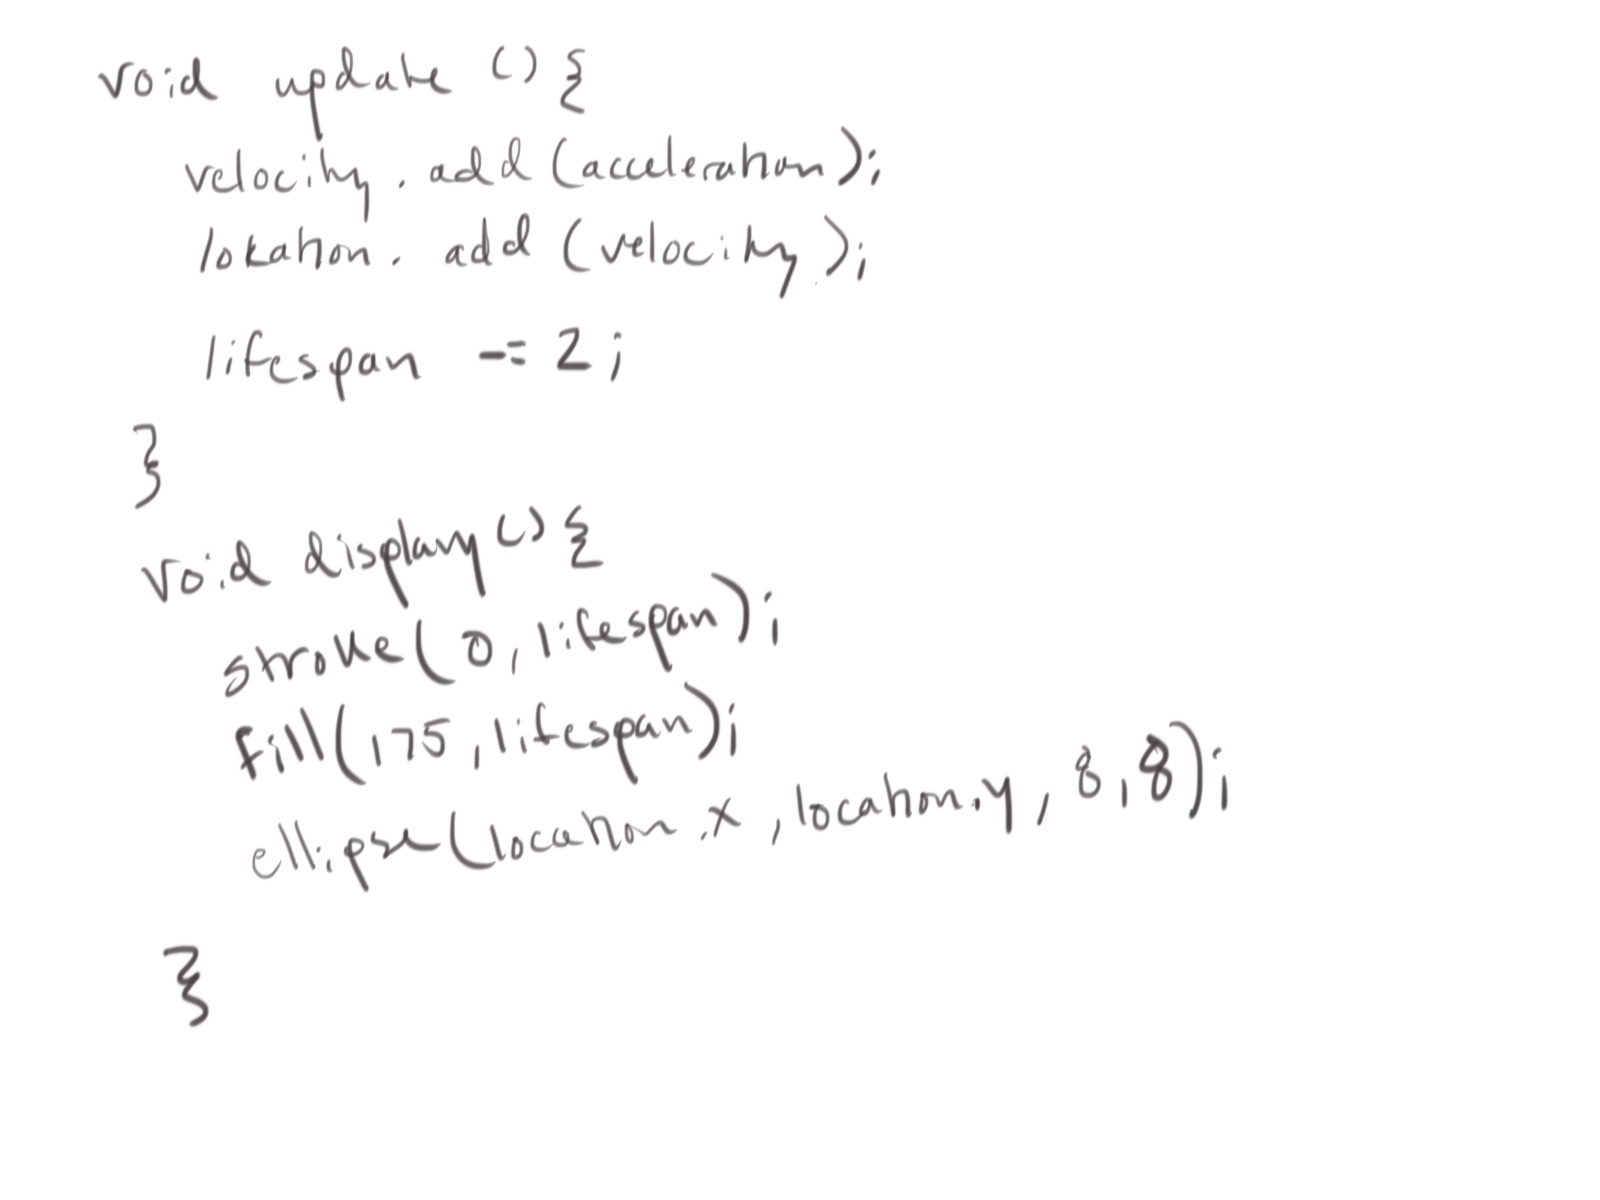 void update () {
velocity. add (acceleration);
lokation. add (velocity);
lifespan -= 2;
}
void display () {
stroke(0, lifespan);
fill(175, lifespan);
ellipse(location.x, location.y, 8, 8);
}